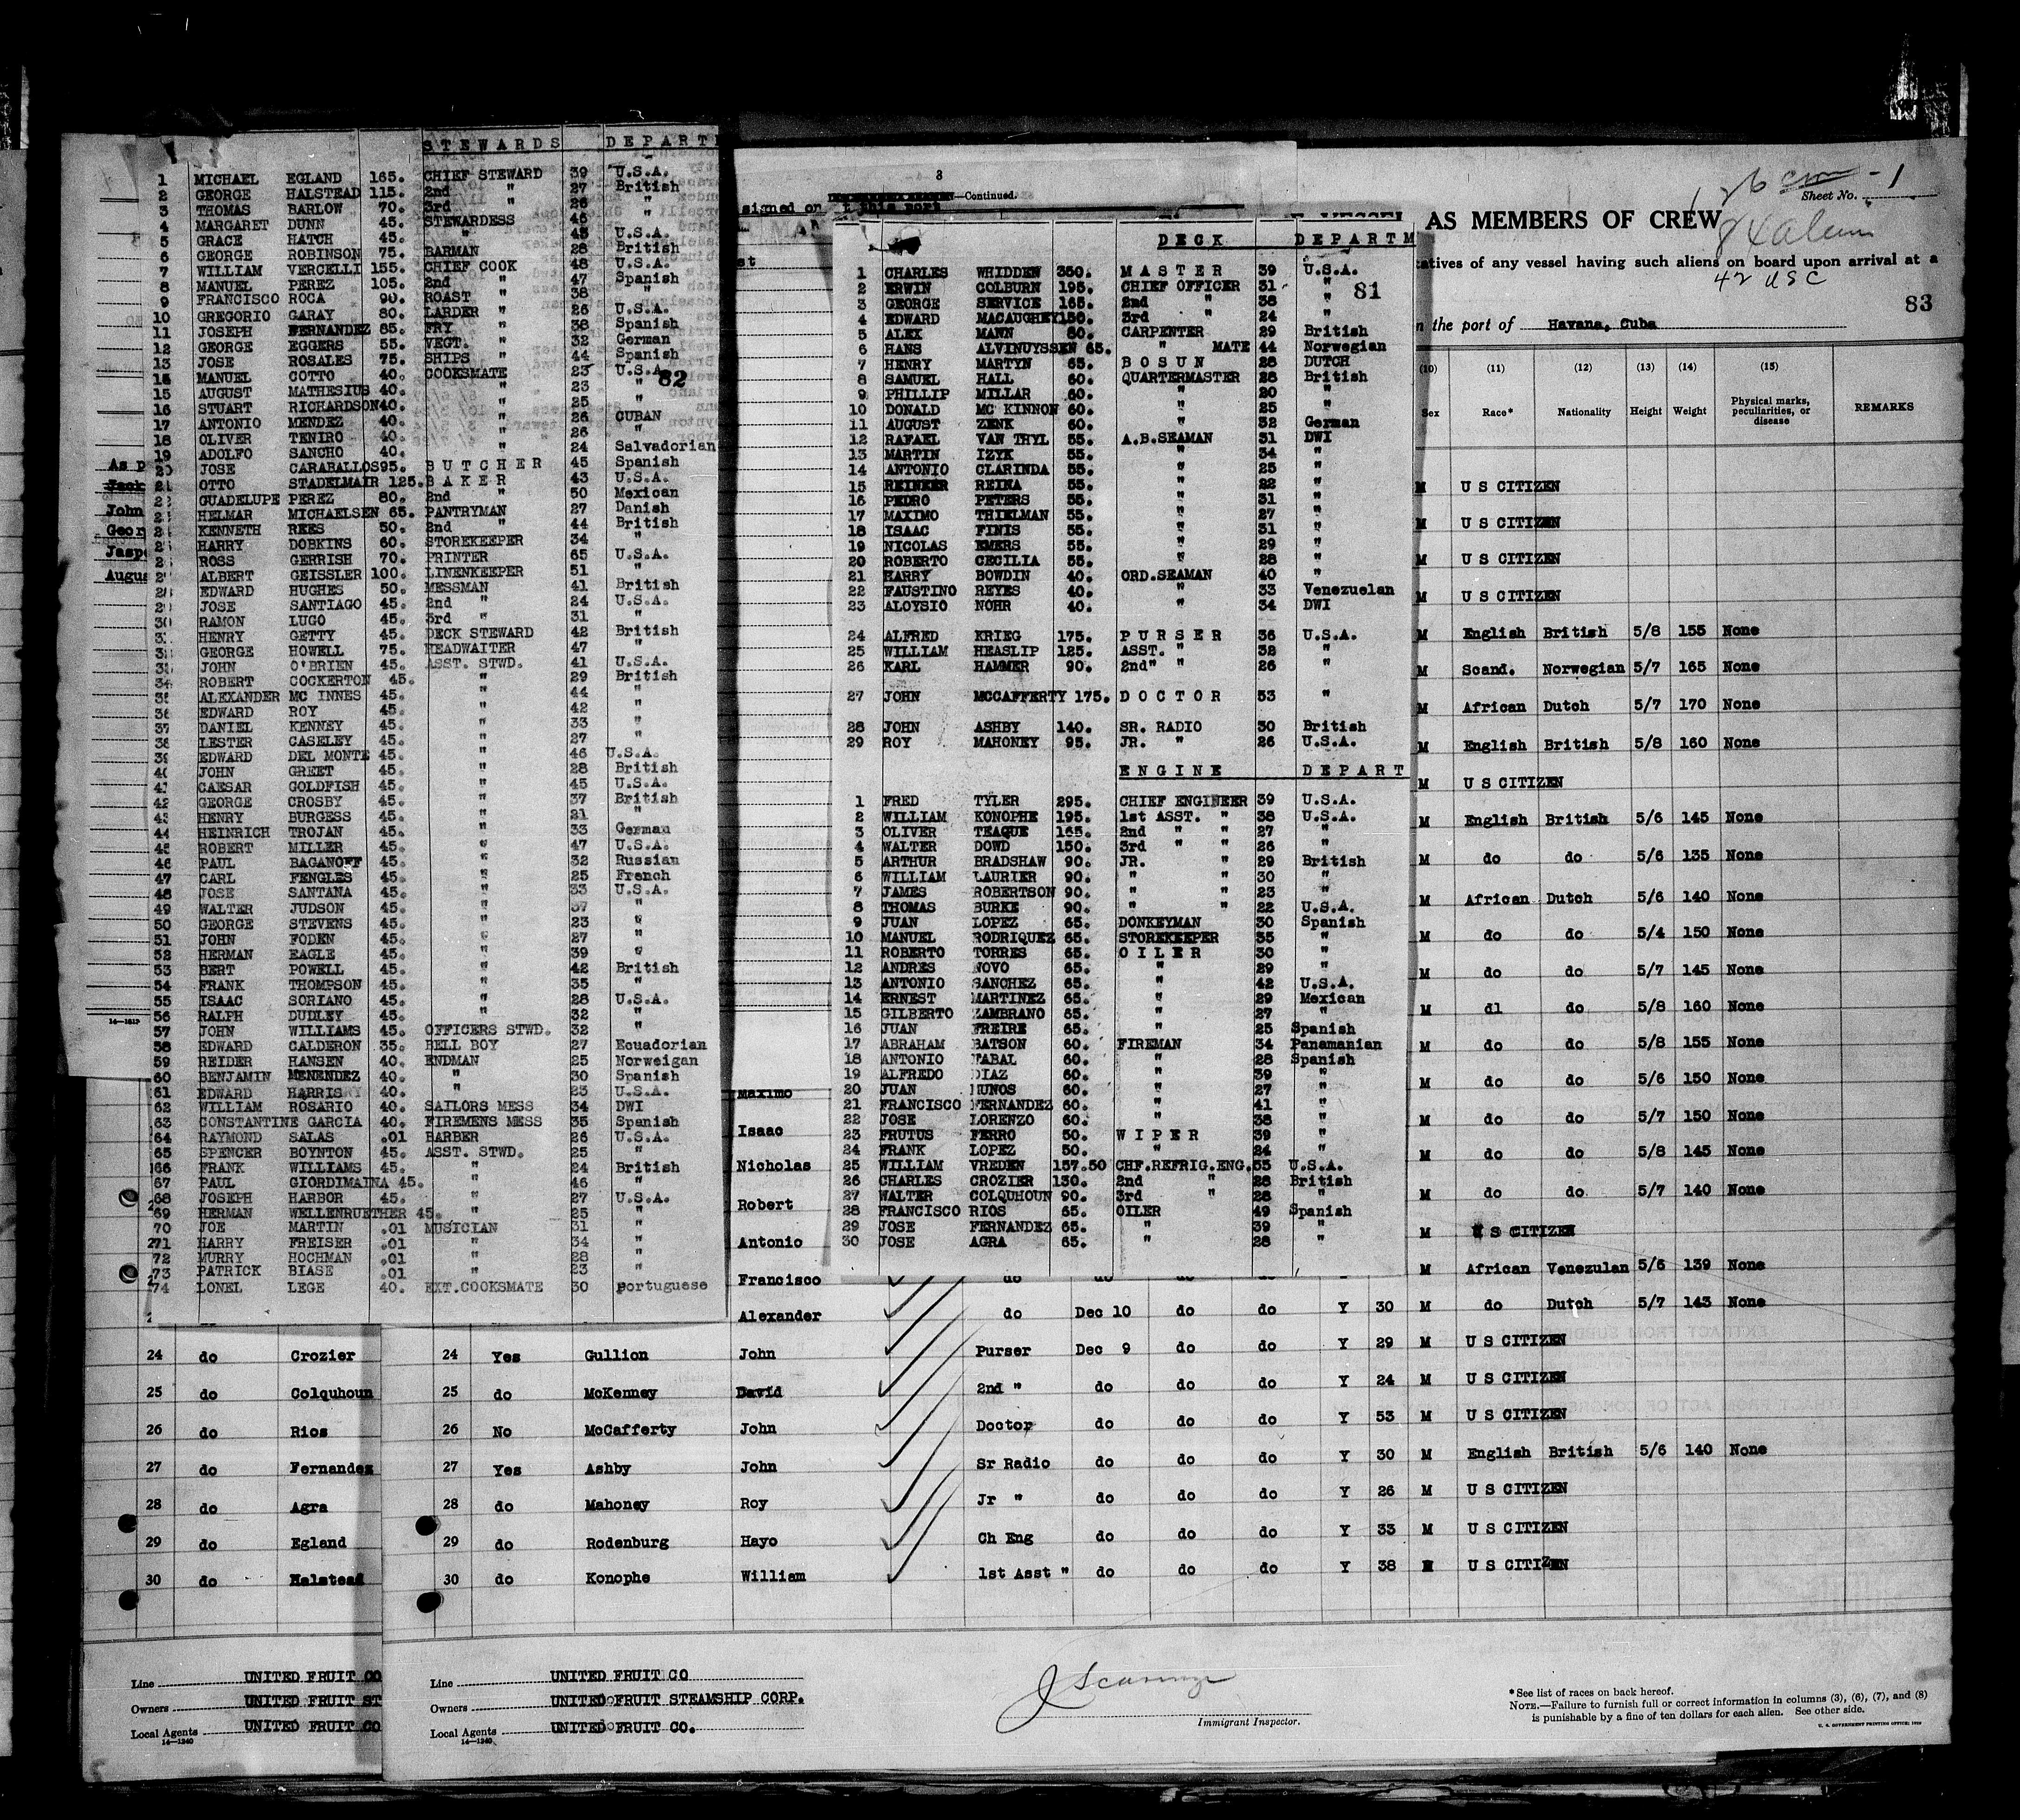 STEWARDS DEPARTM
1 MICHAEL EGLAND 165. CHIEF STEWARD 39 U.S.A.
2 GEORGE HALSTEAD 115. 2nd " 27 British
3 THOMAS BARLOW 70. 3rd " 26 "
4 MARGARET DUNN 45. STEWARDESS 46 "
5 GRACE HATCH 45. " 45 U.S.A.
6 GEORGE ROBINSON 75. BARMAN 28 British
7 WILLIAM VERCELLI 155. CHIEF COOK 48 U.S.A.
8 MANUEL PEREZ 105. 2nd " 47 Spanish
9 FRANCISCO ROCA 90. ROAST " 38 "
10 GREGORIO GARAY 80. LARDER " 26 U.S.A.
11 JOSEPH FERNANDEZ 85. FRY " 38 Spanish
12 GEORGE EGGERS 55. VEGT. " 32 German
13 JOSE ROSALES 75. SHIPS " 44 Spanish
14 MANUEL COTTO 40. COOKSMATE 23 U.S.A.
82
15 AUGUST MATHESIUS 40. " 23 "
16 STUART RICHARDSON 40. " 25 "
17 ANTONIO MENDEZ 40. " 26 CUBAN
18 OLIVER TENIRO 40. " 26 "
19 ADOLFO SANCHO 40. " 24 Salvadorian
20 JOSE CARABALLOS 95. BUTCHER 45 Spanish
21 OTTO STADELMAIR 125. BAKER 43 U.S.A.
22 GUADELUPE PEREZ 80. 2nd " 50 Mexican
23 HELMAR MICHAELSEN 65. PANTRYMAN 27 Danish
24 KENNETH REES 50. 2nd " 44 British
25 HARRY DOBKINS 60. STOREKEEPER 34 "
26 ROSS GERRISH 70. PRINTER 65 U.S.A.
27 ALBERT GEISSLER 100. LINENKEEPER 51 "
28 EDWARD HUGHES 50. MESSMAN 41 British
29 JOSE SANTIAGO 45. 2nd " 24 U.S.A.
30 RAMON LUGO 45. 3rd " 31
31 HENRY GETTY 45. DECK STEWARD 42 British
32 GEORGE HOWELL 75. HEADWAITER 47 "
33 JOHN O'BRIEN 45. ASST. STWD. 41 U.S.A.
34 ROBERT COCKERTON 45. " 29 British
35 ALEXANDER MC INNES 45. " 44 "
36 EDWARD ROY 45. " 42 "
37 DANIEL KENNEY 45. " 33 "
38 LESTER CASELEY 45. " 27 "
39 EDWARD DEL MONTE 45. " 46 U.S.A.
40 JOHN GREET 45. " 28 British
41 CAESAR GOLDFISH 45. " 45 U.S.A.
42 GEORGE CROSBY 45. " 37 British
43 HENRY BURGESS 45. " 21 "
44 HEINRICH TROJAN 45. " 33 German
45 ROBERT MILLER 45. " 47 U.S.A.
46 PAUL BAGANOFF 45. " 32 Russian
47 CARL FENGLES 45. " 25 French
48 JOSE SANTANA 45. " 33 U.S.A.
49 WALTER JUDSON 45. " 37 "
50 GEORGE STEVENS 45. " 23 "
51 JOHN FODEN 45. " 27 "
52 HERMAN EAGLE 45. " 39 "
53 BERT POWELL 45. " 42 British
54 FRANK THOMPSON 45. " 35 "
55 ISAAC SORIANO 45. " 28 U.S.A.
56 RALPH DUDLEY 45. " 32 "
57 JOHN WILLIAMS 45. OFFICERS STWD. 32 "
58 EDWARD CALDERON 35. BELL BOY 27 Ecuadorian
59 REIDER HANSEN 40. ENDMAN 25 Norweigan
60 BENJAMIN MENENDEZ 40. " 30 Spanish
61 EDWARD HARRIS 40. " 23 U.S.A.
62 WILLIAM ROSARIO 40. SAILORS MESS 34 DWI
63 CONSTANTINE GARCIA 40. FIREMENS MESS 35 Spanish
64 RAYMOND SALAS .01 BARBER 26 U.S.A.
65 SPENCER BOYNTON 45. ASST. STWD. 25 "
66 FRANK WILLIAMS 45. " 24 British
67 PAUL GIORDIMAINA 45. " 46 "
68 JOSEPH HARBOR 45. " 27 U.S.A.
69 HERMAN WELLENRUETHER 45. " 25 "
70 JOE MARTIN .01 MUSICIAN 31 "
71 HARRY FREISER .01 " 34 "
72 MURRY HOCHMAN .01 " 28 "
73 PATRICK BIASE .01 " 23 "
74 LONEL LEGE 40. EXT.COOKSMATE 30 portuguese
As p
Jack
John
Geor
Jaspe
Augus
3
—Continued.
signed on at this port
DECK DEPARTM
1 CHARLES WHIDDEN 350. MASTER 39 U.S.A.
2 ERWIN COLBURN 195. CHIEF OFFICER 31 "
81
3 GEORGE SERVICE 165. 2nd " 38 "
4 EDWARD MACAUGHEY 150. 3rd " 24 "
5 ALEX MANN 80. CARPENTER 29 British
6 HANS ALVINUYSSEN 65. " MATE 44 Norwegian
7 HENRY MARTYN 65. BOSUN 28 DUTCH
8 SAMUEL HALL 60. QUARTERMASTER 28 British
9 PHILLIP MILLAR 60. " 20 "
10 DONALD MC KINNON 60. " 25 "
11 AUGUST ZENK 60. " 32 German
12 RAFAEL VAN THYL 55. A.B.SEAMAN 31 DWI
13 MARTIN IZYK 55. " 34 "
14 ANTONIO CLARINDA 55. " 25 "
15 REINKER REINA 55. " 22 "
16 PEDRO PETERS 55. " 31 "
17 MAXIMO THIELMAN 55. " 27 "
18 ISAAC FINIS 55. " 31 "
19 NICOLAS EMERS 55. " 29 "
20 ROBERTO CECILIA 55. " 28 "
21 HARRY BOWDIN 40. ORD.SEAMAN 40 "
22 FAUSTINO REYES 40. " 33 Venezuelan
23 ALOYSIO NOHR 40. " 34 DWI
24 ALFRED KRIEG 175. PURSER 36 U.S.A.
25 WILLIAM HEASLIP 125. ASST. " 32 "
26 KARL HAMMER 90. 2nd" " 26 "
27 JOHN MCCAFFERTY 175. DOCTOR 53 "
28 JOHN ASHBY 140. SR. RADIO 30 British
29 ROY MAHONEY 95. JR. " 26 U.S.A.
ENGINE DEPART
1 FRED TYLER 295. CHIEF ENGINEER 39 U.S.A.
2 WILLIAM KONOPHE 195. 1st ASST. " 38 U.S.A.
3 OLIVER TEAQUE 165. 2nd " " 27 "
4 WALTER DOWD 150. 3rd " " 26 "
5 ARTHUR BRADSHAW 90. JR. " 29 British
6 WILLIAM LAURIER 90. " " 30 "
7 JAMES ROBERTSON 90. " " 23 "
8 THOMAS BURKE 90. " " 22 U.S.A.
9 JUAN LOPEZ 65. DONKEYMAN 30 Spanish
10 MANUEL RODRIQUEZ 65. STOREKEEPER 35 "
11 ROBERTO TORRES 65. OILER 30 "
12 ANDRES NOVO 65. " 29 "
13 ANTONIO SANCHEZ 65. " 42 U.S.A.
14 ERNEST MARTINEZ 65. " 29 Mexican
15 GILBERTO ZAMBRANO 65. " 27 "
16 JUAN FREIRE 65. " 25 Spanish
17 ABRAHAM BATSON 60. FIREMAN 34 Panamanian
18 ANTONIO TABAL 60. " 28 Spanish
19 ALFREDO DIAZ 60. " 39 "
20 JUAN NUNOS 60. " 27 "
21 FRANCISCO FERNANDEZ 60. " 41 "
22 JOSE LORENZO 60. " 38 "
23 FRUTUS FERRO 50. WIPER 39 "
24 FRANK LOPEZ 50. " 24 "
25 WILLIAM VREDEN 157.50 CHF.REFRIG.ENG. 55 U.S.A.
26 CHARLES CROZIER 130. 2nd " 28 British
27 WALTER COLQUHOUN 90. 3rd " 28 "
28 FRANCISCO RIOS 65. OILER 49 Spanish
29 JOSE FERNANDEZ 65. " 39 "
30 JOSE AGRA 65. " 28 "
Sheet No. 1
AS MEMBERS OF CREW
8 Xalien
tatives of any vessel having such aliens on board upon arrival at a
42 USC
83
n the port of Havana, Cuba
(10) (11) (12) (13) (14) (15)
Sex Race* Nationality Height Weight Physical marks, peculiarities, or disease REMARKS
M U S CITIZEN
M U S CITIZEN
M U S CITIZEN
M U S CITIZEN
M English British 5/8 155 None
M Scand. Norwegian 5/7 165 None
M African Dutch 5/7 170 None
M English British 5/8 160 None
M U S CITIZEN
M English British 5/6 145 None
M do do 5/6 135 None
M African Dutch 5/6 140 None
M do do 5/4 150 None
M do do 5/7 145 None
M dl do 5/8 160 None
M do do 5/8 155 None
M do do 5/6 150 None
Maximo M do do 5/7 150 None
Isaac M do do 5/8 145 None
Nicholas M do do 5/7 140 None
Robert M U S CITIZEN
Antonio M African Venezulan 5/6 139 None
Francisco do do
Alexander do Dec 10 do do Y 30 M do Dutch 5/7 143 None
24 do Crozier 24 Yes Gullion John Purser Dec 9 do do Y 29 M U S CITIZEN
25 do Colquhoun 25 do McKenney David 2nd " do do do Y 24 M U S CITIZEN
26 do Rios 26 No McCafferty John Doctor do do do Y 53 M U S CITIZEN
27 do Fernandez 27 Yes Ashby John Sr Radio do do do Y 30 M English British 5/6 140 None
28 do Agra 28 do Mahoney Roy Jr " do do do Y 26 M U S CITIZEN
29 do Egland 29 do Rodenburg Hayo Ch Eng do do do Y 33 M U S CITIZEN
30 do Halstead 30 do Konophe William 1st Asst " do do do Y 38 M U S CITIZEN
14—1240
Line UNITED FRUIT CO
Owners UNITED FRUIT ST
Local Agents UNITED FRUIT CO
Line UNITED FRUIT CO
Owners UNITED FRUIT STEAMSHIP CORP.
Local Agents UNITED FRUIT CO.
14—1240
Immigrant Inspector.
*See list of races on back hereof.
NOTE.—Failure to furnish full or correct information in columns (3), (6), (7), and (8)
is punishable by a fine of ten dollars for each alien. See other side.
U. S. GOVERNMENT PRINTING OFFICE: 1929